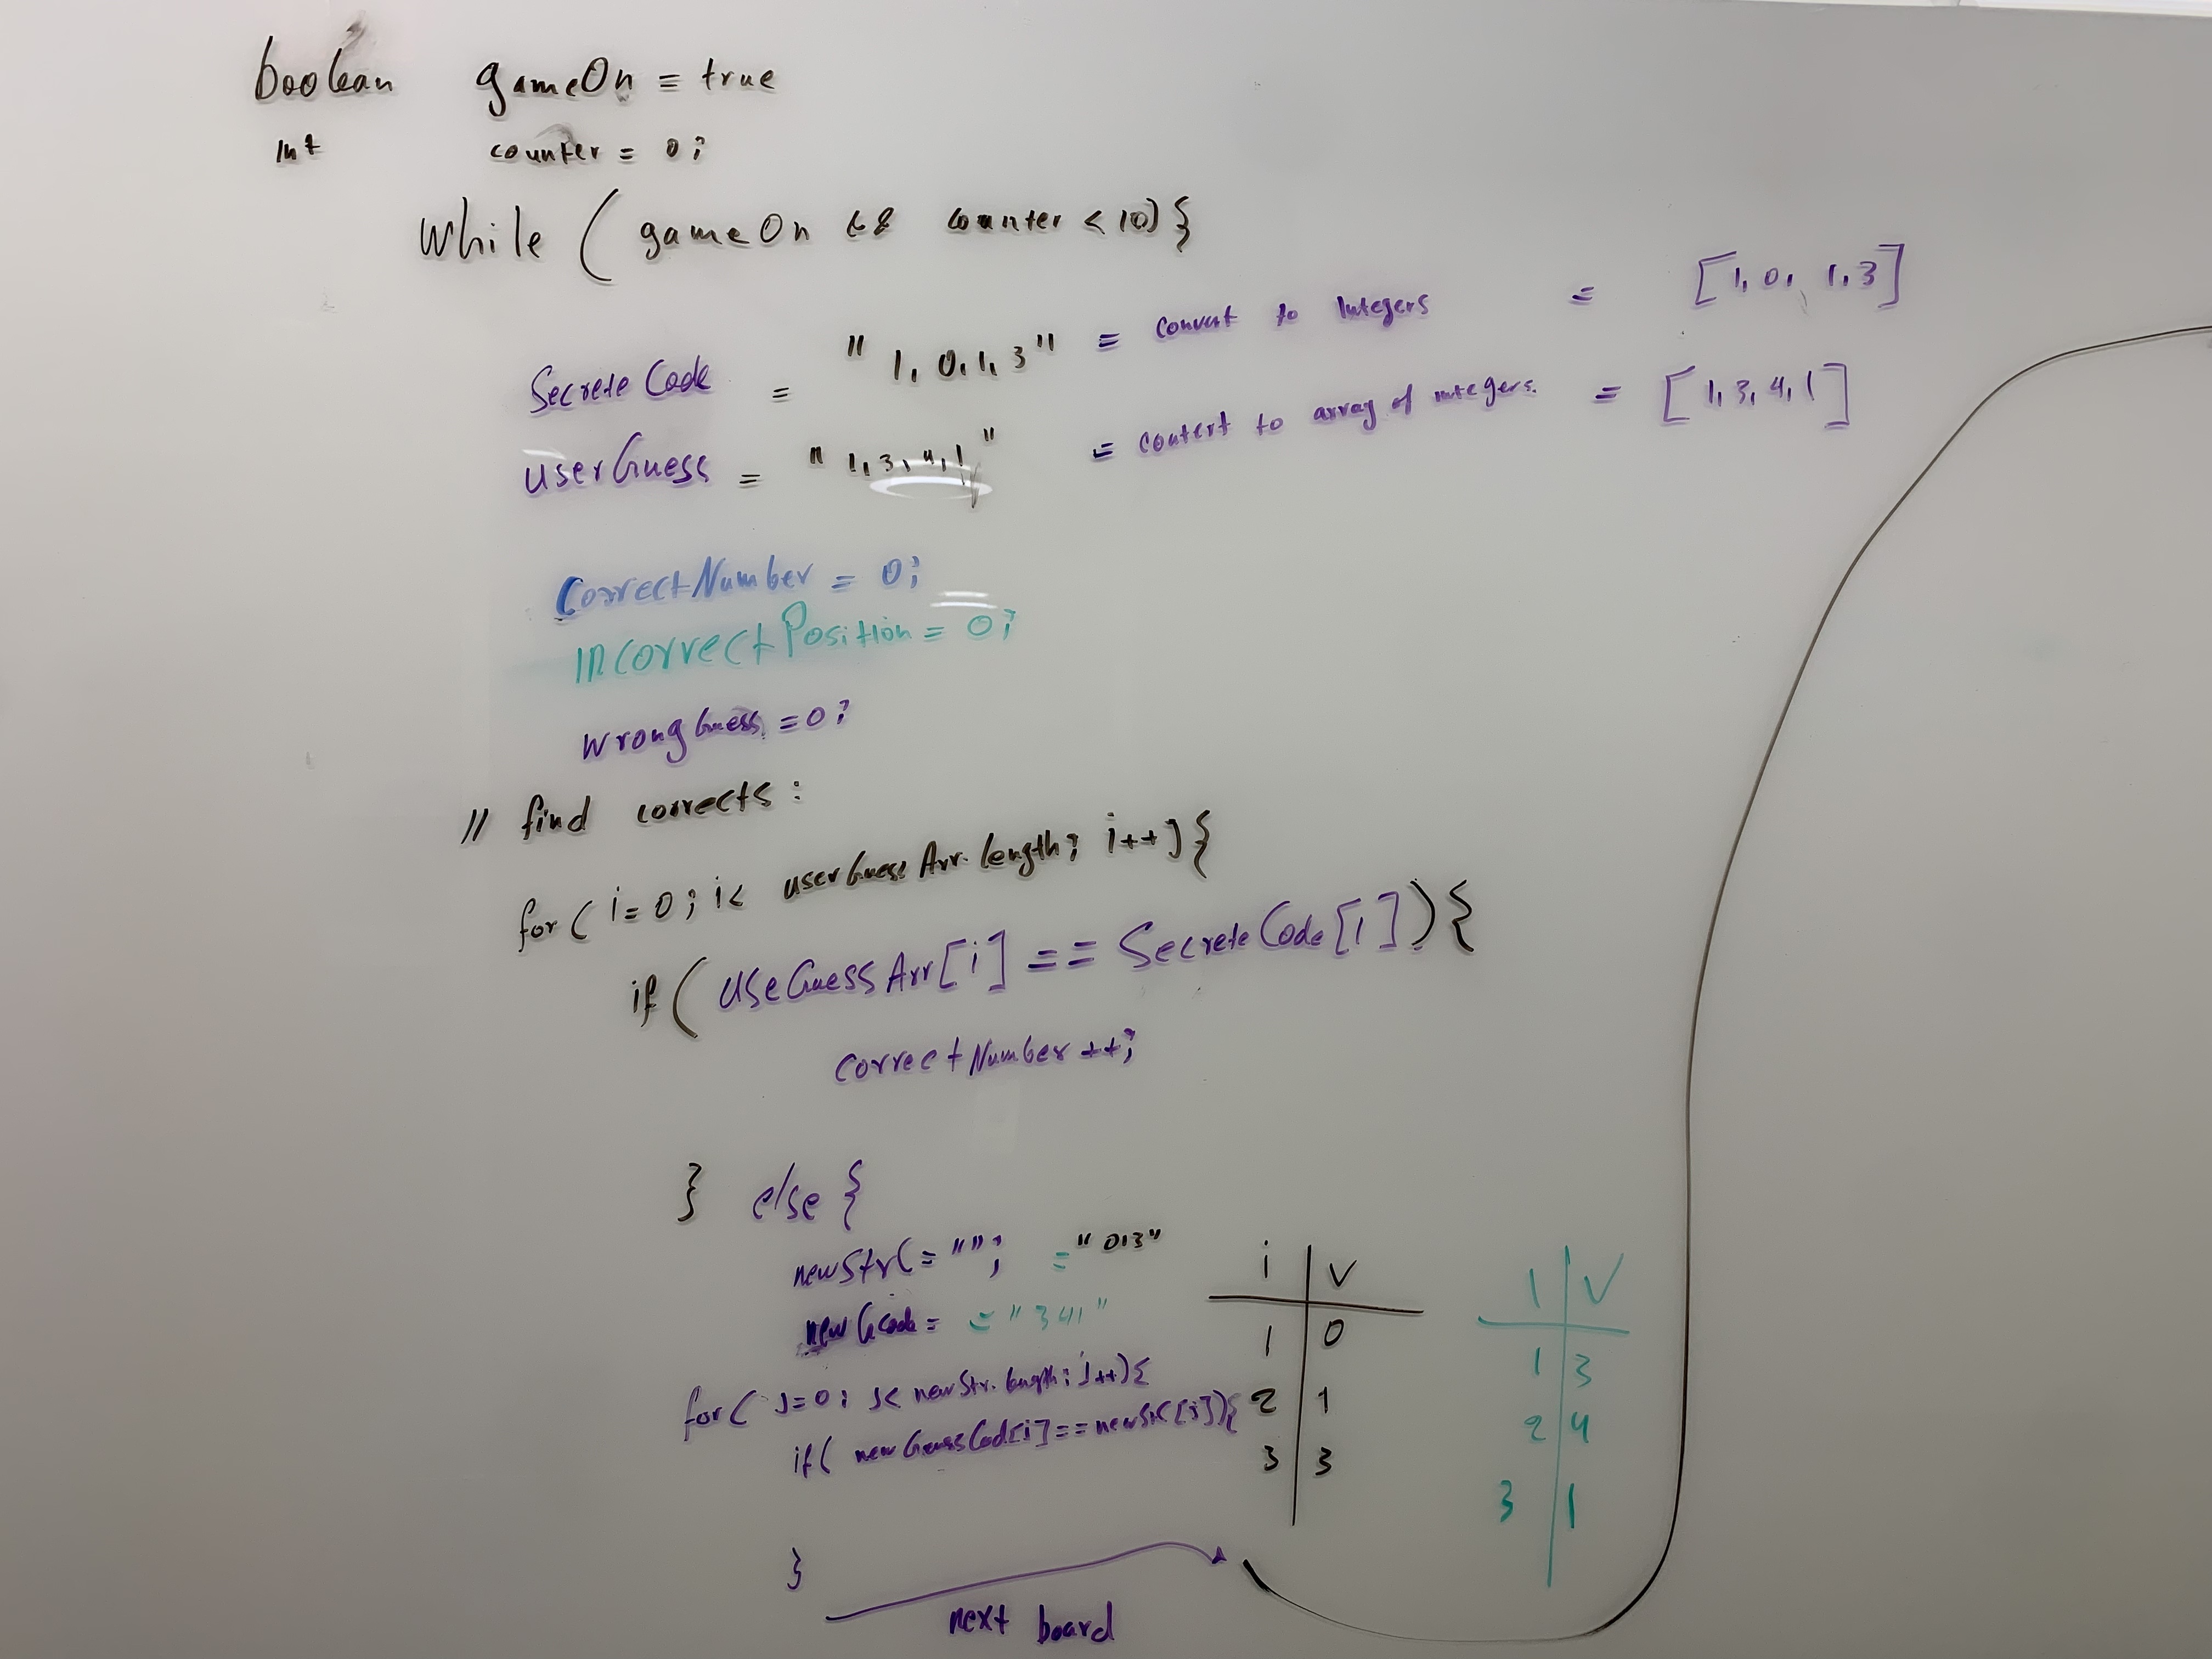 boolean gameOn = true
int counter = 0;
while ( gameOn && counter < 10) {
Secrete Code = " 1, 0, 1, 3 " = convert to Integers = [1, 0, 1, 3]
userGuess = " 1, 3, 4, 1 " = convert to array of integers. = [1, 3, 4, 1]
CorrectNumber = 0;
inCorrectPosition = 0;
wrongGuess = 0;
// find corrects :
for ( i = 0 ; i < userGuessArr.length; i++ ) {
if ( UseGuessArr[i] == SecreteCode[i] ) {
correctNumber ++;
} else {
newStr( = " "; = "013"
= "341"
for ( J=0; J< newStr.length; J++) {
if (
}
next board
i | V
1 | 0
2 | 1
3 | 3
1 | V
1 | 3
2 | 4
3 | 1